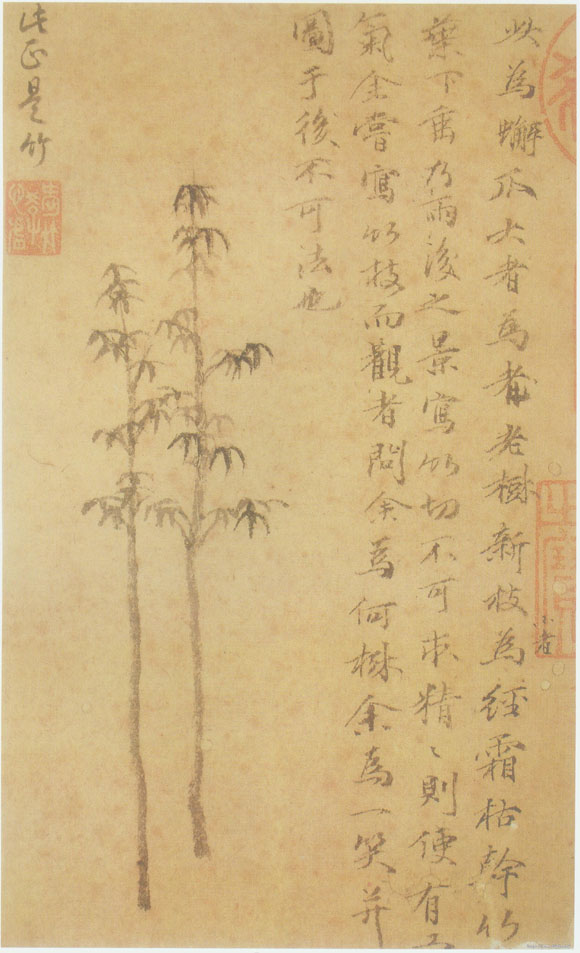 此為蠏爪大者為者老樹新枝為經霜枯幹竹
小者
葉下垂乃雨後之景寫此切不可求精〻則便有工
氣全嘗寫此枝而觀者問余為何樹余為一笑并
圖于後不可法也
此正是竹